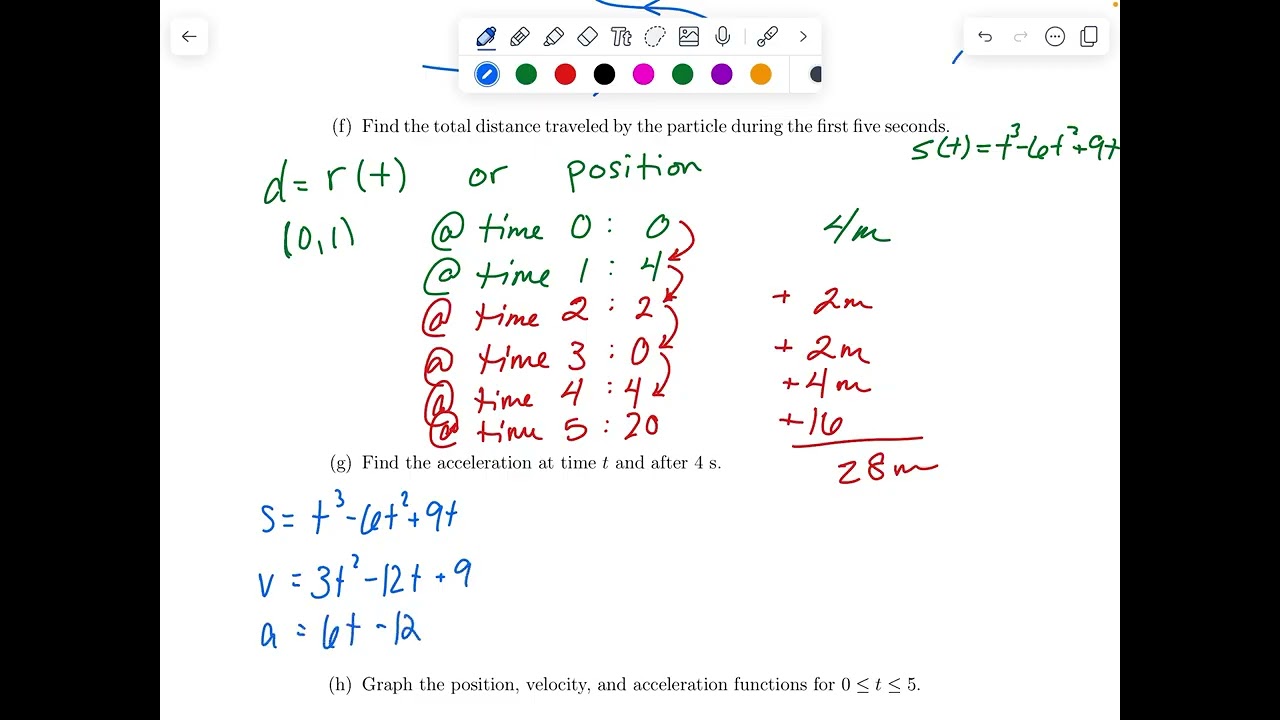 Tt
(f) Find the total distance traveled by the particle during the first five seconds.
s(t) = t³-6t²+9t
d = r(t) or position
(0,1)
@ time 0 : 0 4m
@ time 1 : 4
@ time 2 : 2 + 2m
@ time 3 : 0 + 2m
@ time 4 : 4 +4m
@ time 5 : 20 +16
28m
(g) Find the acceleration at time t and after 4 s.
s = t³-6t²+9t
v = 3t²-12t+9
a = 6t-12
(h) Graph the position, velocity, and acceleration functions for 0 ≤ t ≤ 5.